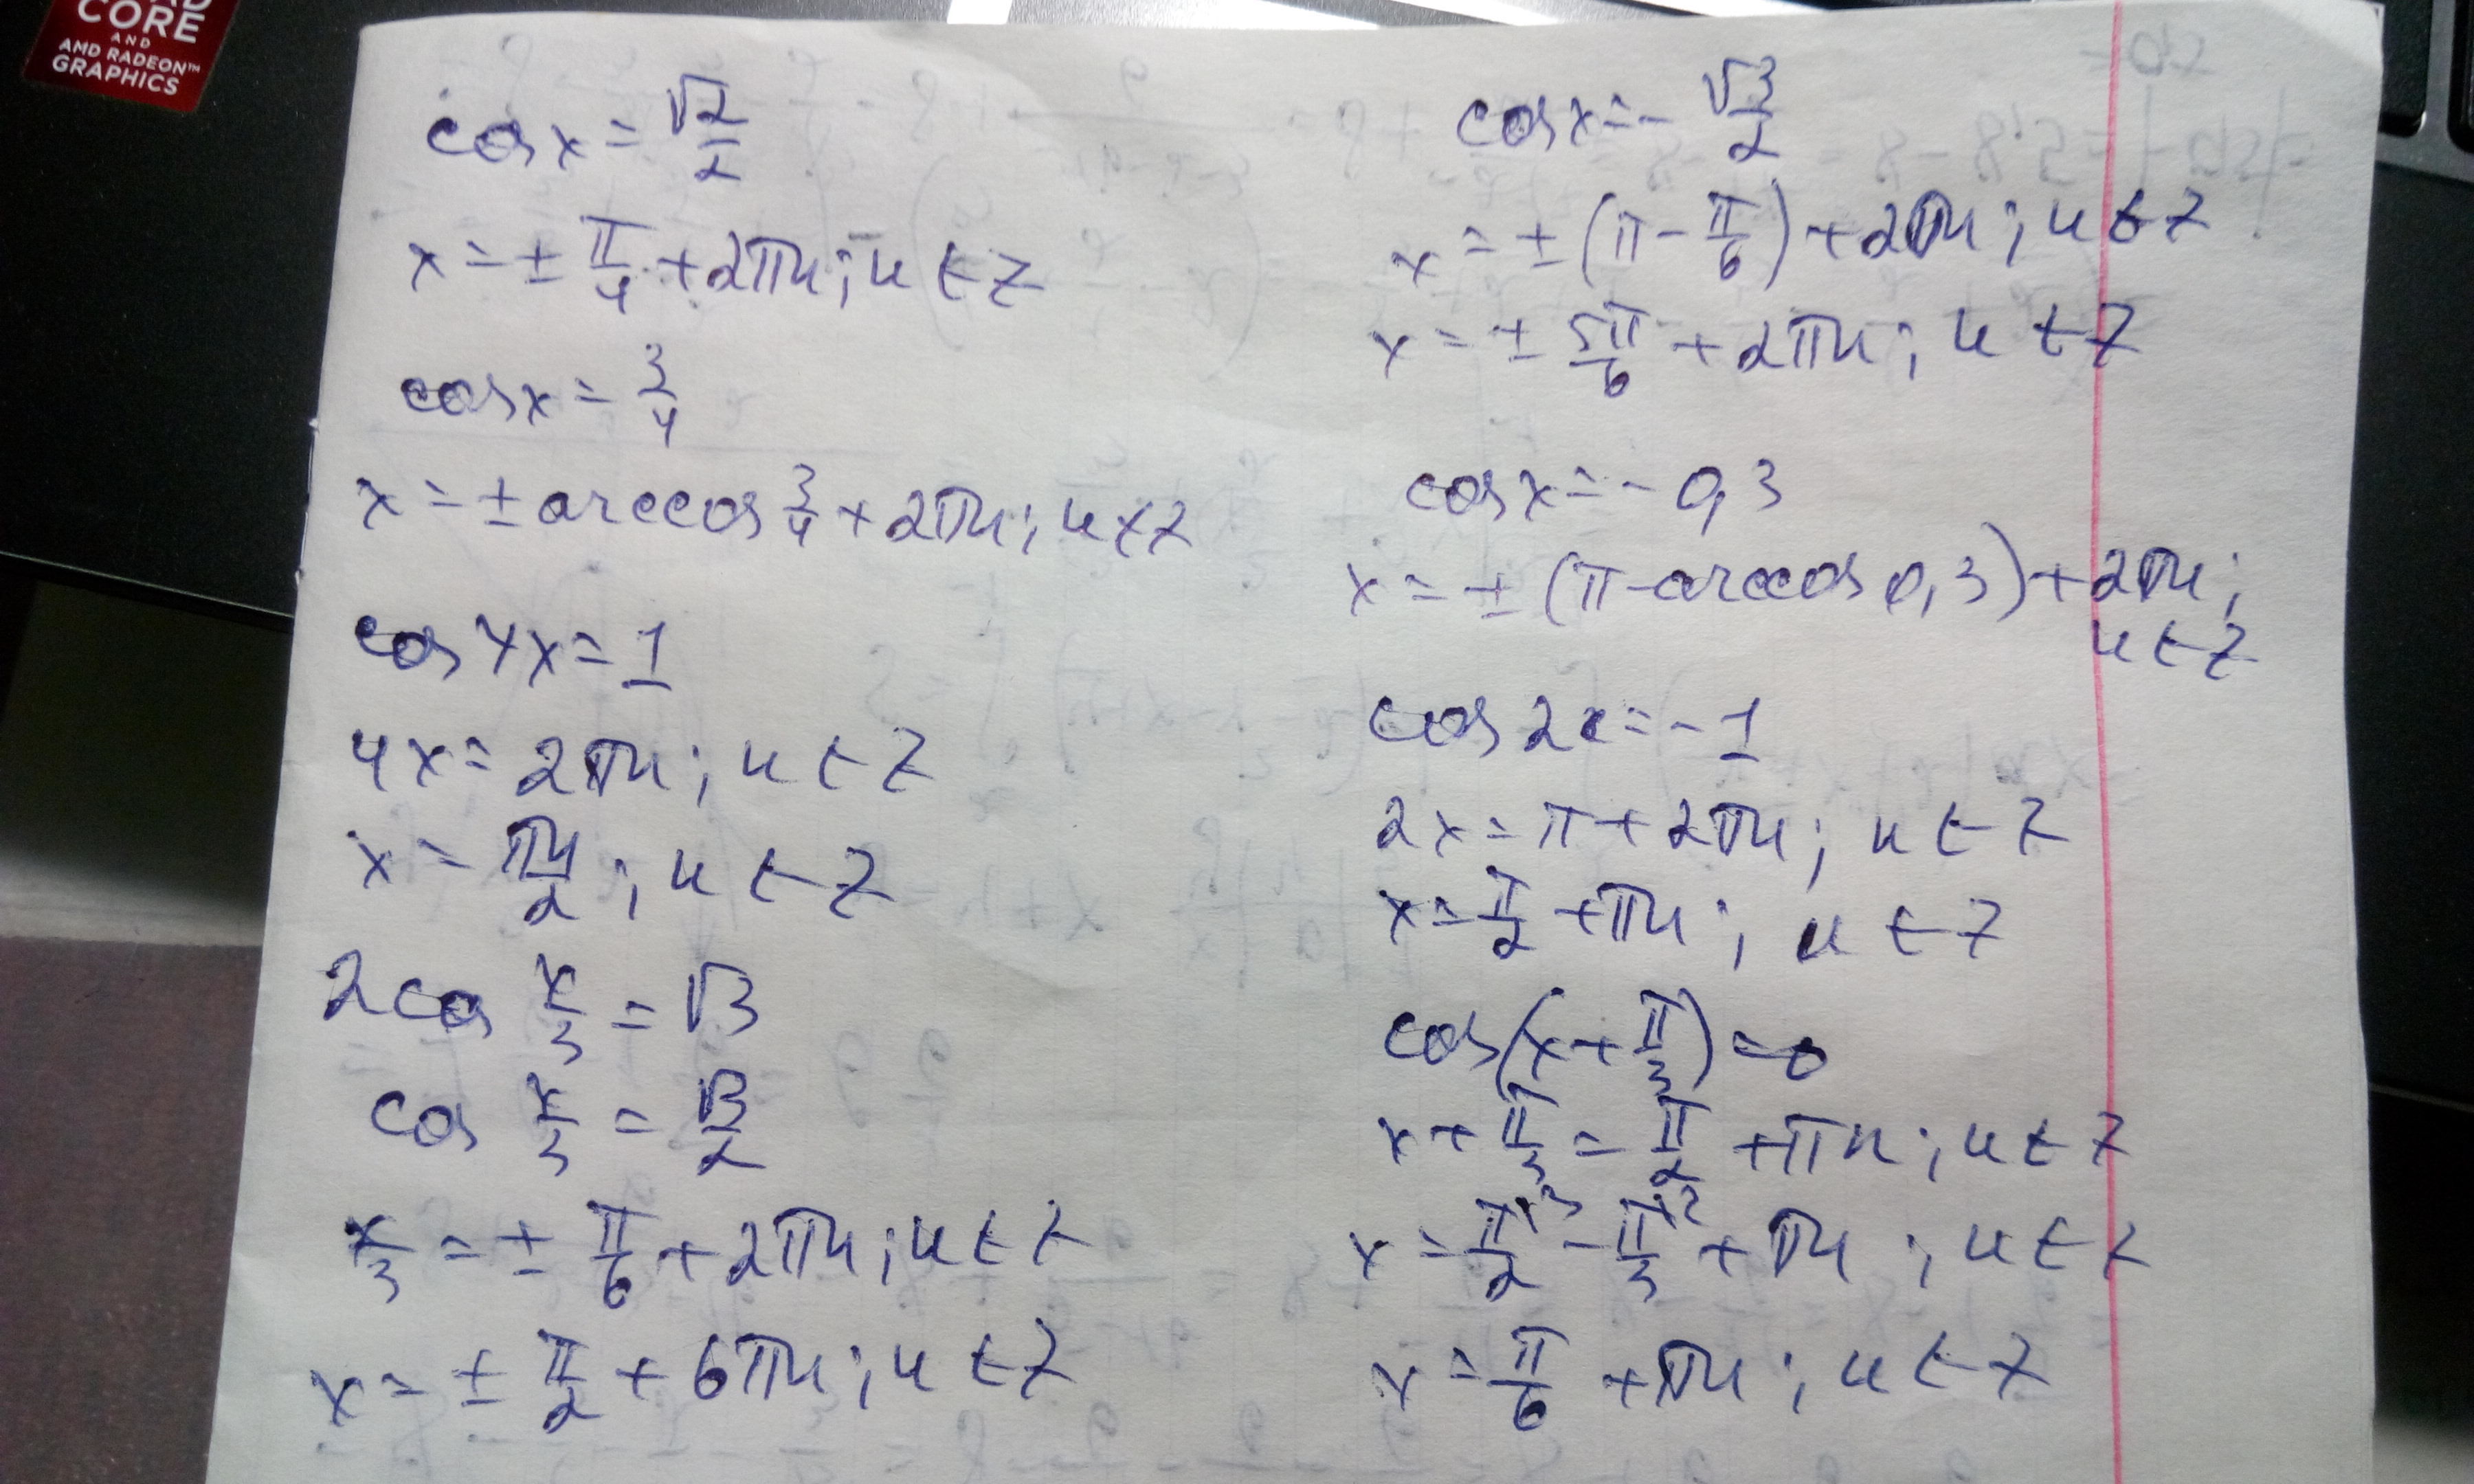 CORE
AND
AMD RADEON™
GRAPHICS
cos x = √2/2
x = ± π/4 + 2πn; n ∈ Z
cos x = 3/4
x = ± arccos 3/4 + 2πn; n ∈ Z
cos 4x = 1
4x = 2πn; n ∈ Z
x = πn/2; n ∈ Z
2cos x/3 = √3
cos x/3 = √3/2
x/3 = ± π/6 + 2πn; n ∈ Z
x = ± π/2 + 6πn; n ∈ Z
cos x = - √3/2
x = ± (π - π/6) + 2πn; n ∈ Z
x = ± 5π/6 + 2πn; n ∈ Z
cos x = - 0,3
x = ± (π - arccos 0,3) + 2πn;
n ∈ Z
cos 2x = - 1
2x = π + 2πn; n ∈ Z
x = π/2 + πn; n ∈ Z
cos(x + π/3) = 0
x + π/3 = π/2 + πn; n ∈ Z
x = π/2 - π/3 + πn; n ∈ Z
x = π/6 + πn; n ∈ Z